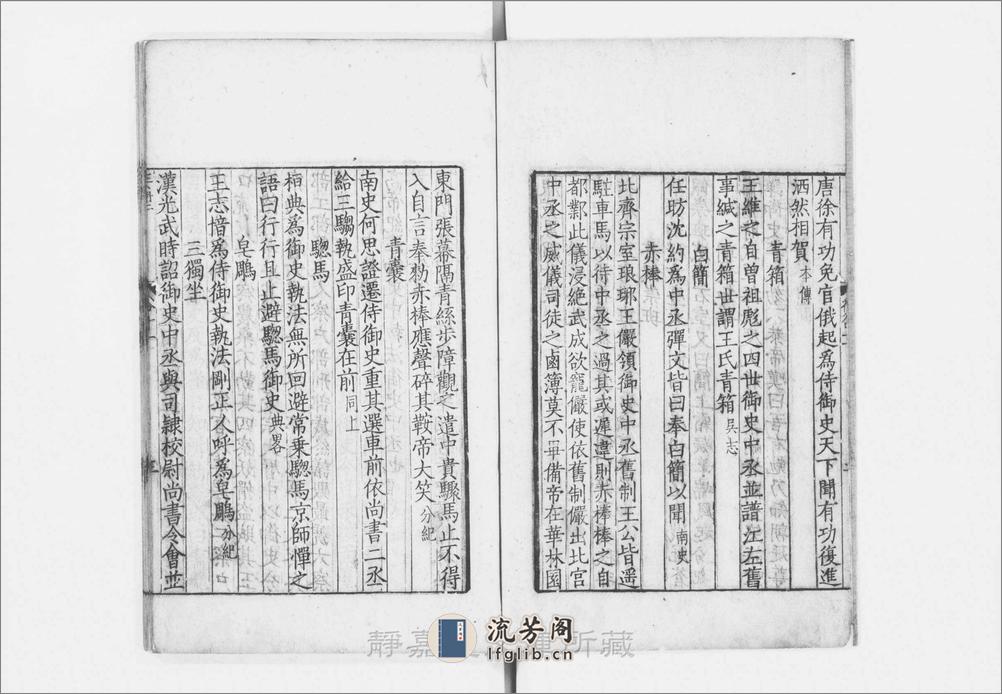 唐徐有功免官俄起爲侍御史天下聞有功復進
洒然相賀本傳
青箱
王維之自曾祖彪之四世御史中丞並譜江左舊
事緘之青箱世謂王氏青箱吳志
白簡
任昉沈約爲中丞彈文皆曰奉白簡以聞南史
赤棒
北齊宗室琅琊王儼領御史中丞舊制王公皆遥
駐車馬以待中丞之過其或遲違則赤棒棒之自
都鄴此儀浸絶武成欲寵儼使依舊制儼出北宫
中丞之威儀司徒之鹵簿莫不畢備帝在華林園
東門張幕隔青絲步障觀之遣中貴驟馬止不得
入自言奉勑赤棒應聲碎其鞍帝大笑分紀
青囊
南史何思證遷侍御史重其選車前依尚書二丞
給三騶執盛印青囊在前同上
驄馬
桓典爲御史執法無所回避常乗驄馬京師憚之
語曰行行且止避驄馬御史典畧
皂鵰
王志愔爲侍御史執法剛正人呼爲皂鵰分紀
三獨坐
漢光武時詔御史中丞與司隷校尉尚書令會並
靜嘉 所藏
流芳阁
lfglib.cn